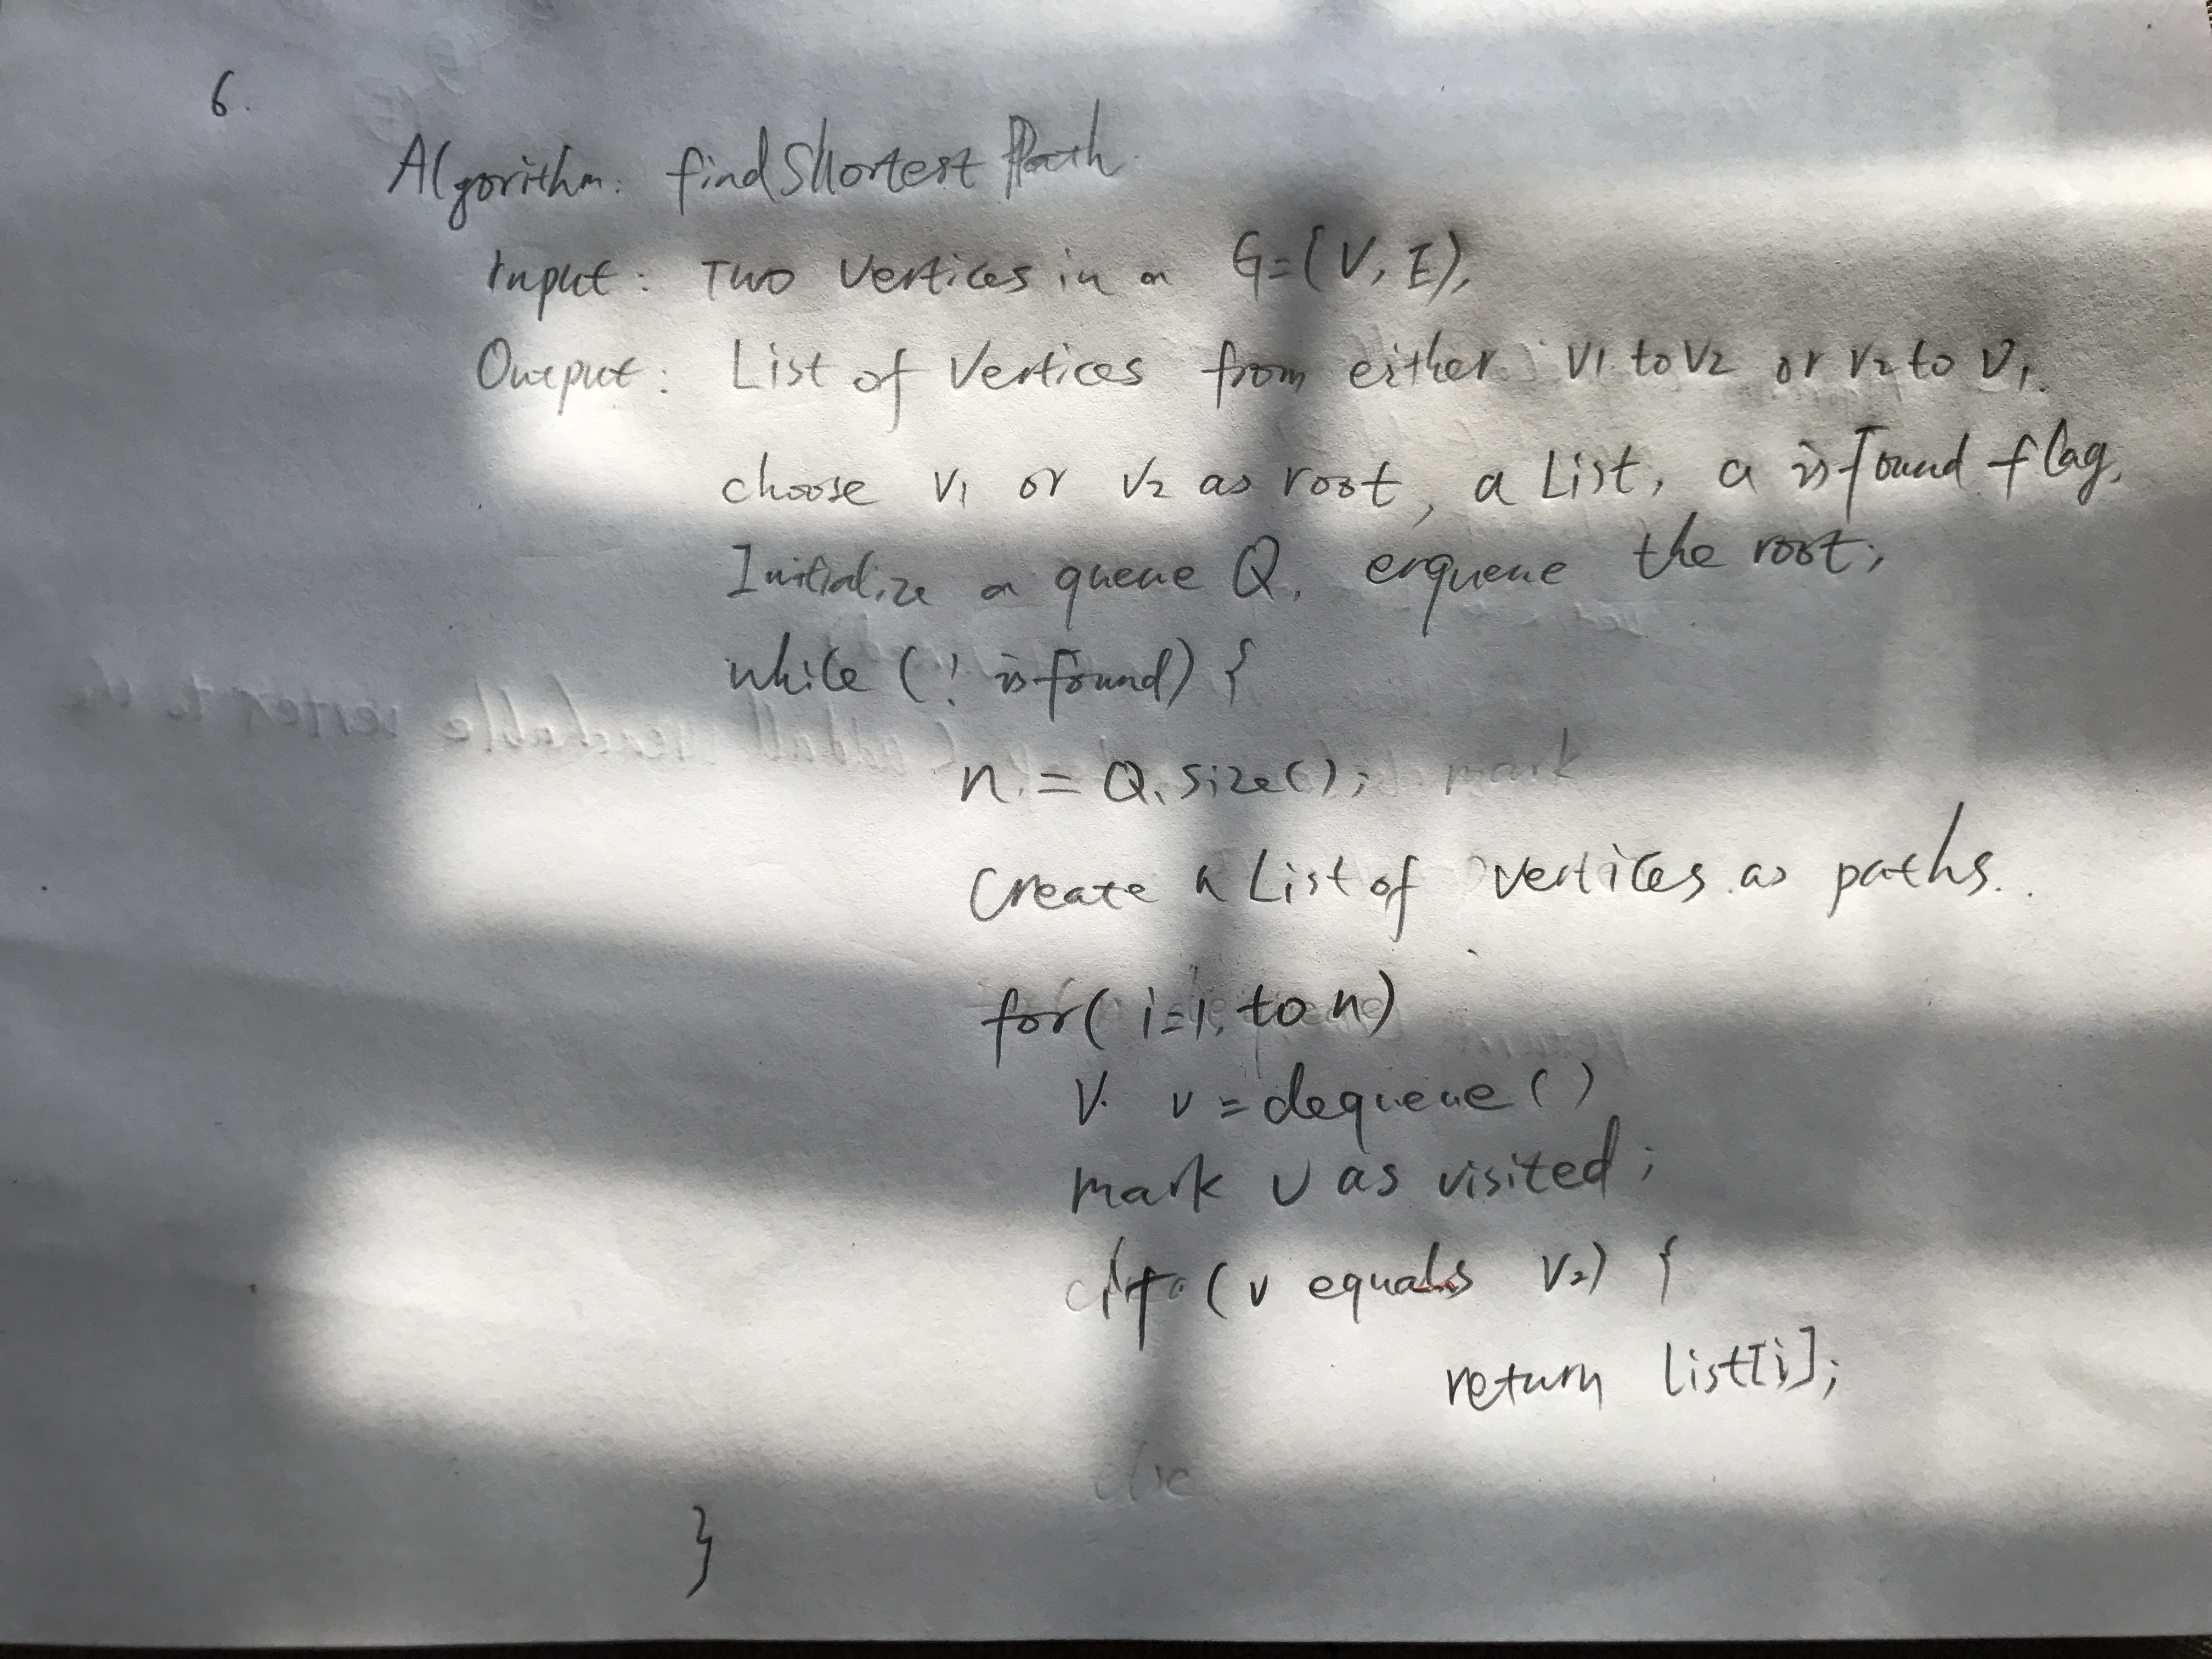 6.
Algorithm: findShortestPath
Input: Two vertices in a G=(V,E),
Output: List of vertices from either v1 to v2 or v2 to v1.
choose v1 or v2 as root, a List, a isFound flag,
Initialize a queue Q, enqueue the root,
while (! isfound) {
n = Q.size();
Create n List of vertices as paths.
for( i=1; to n)
v = dequeue()
mark v as visited;
if (v equals v2) {
return List[i];
else
}